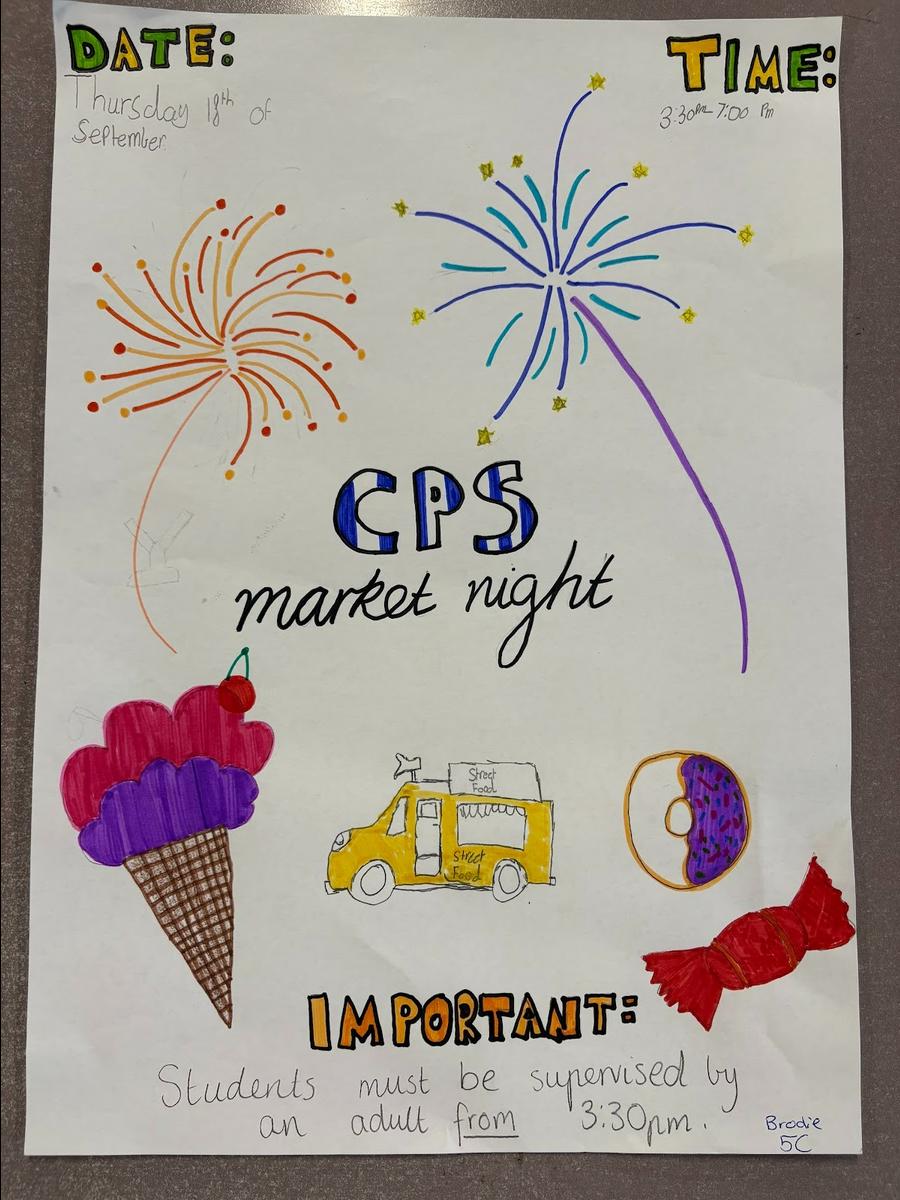 DATE:
Thursday 18th of
September
TIME:
3:30pm-7:00 Pm
CPS
market night
Street
Food
Street
Food
IMPORTANT:
Students must be supervised by
an adult from 3:30pm.
Brodie
5C